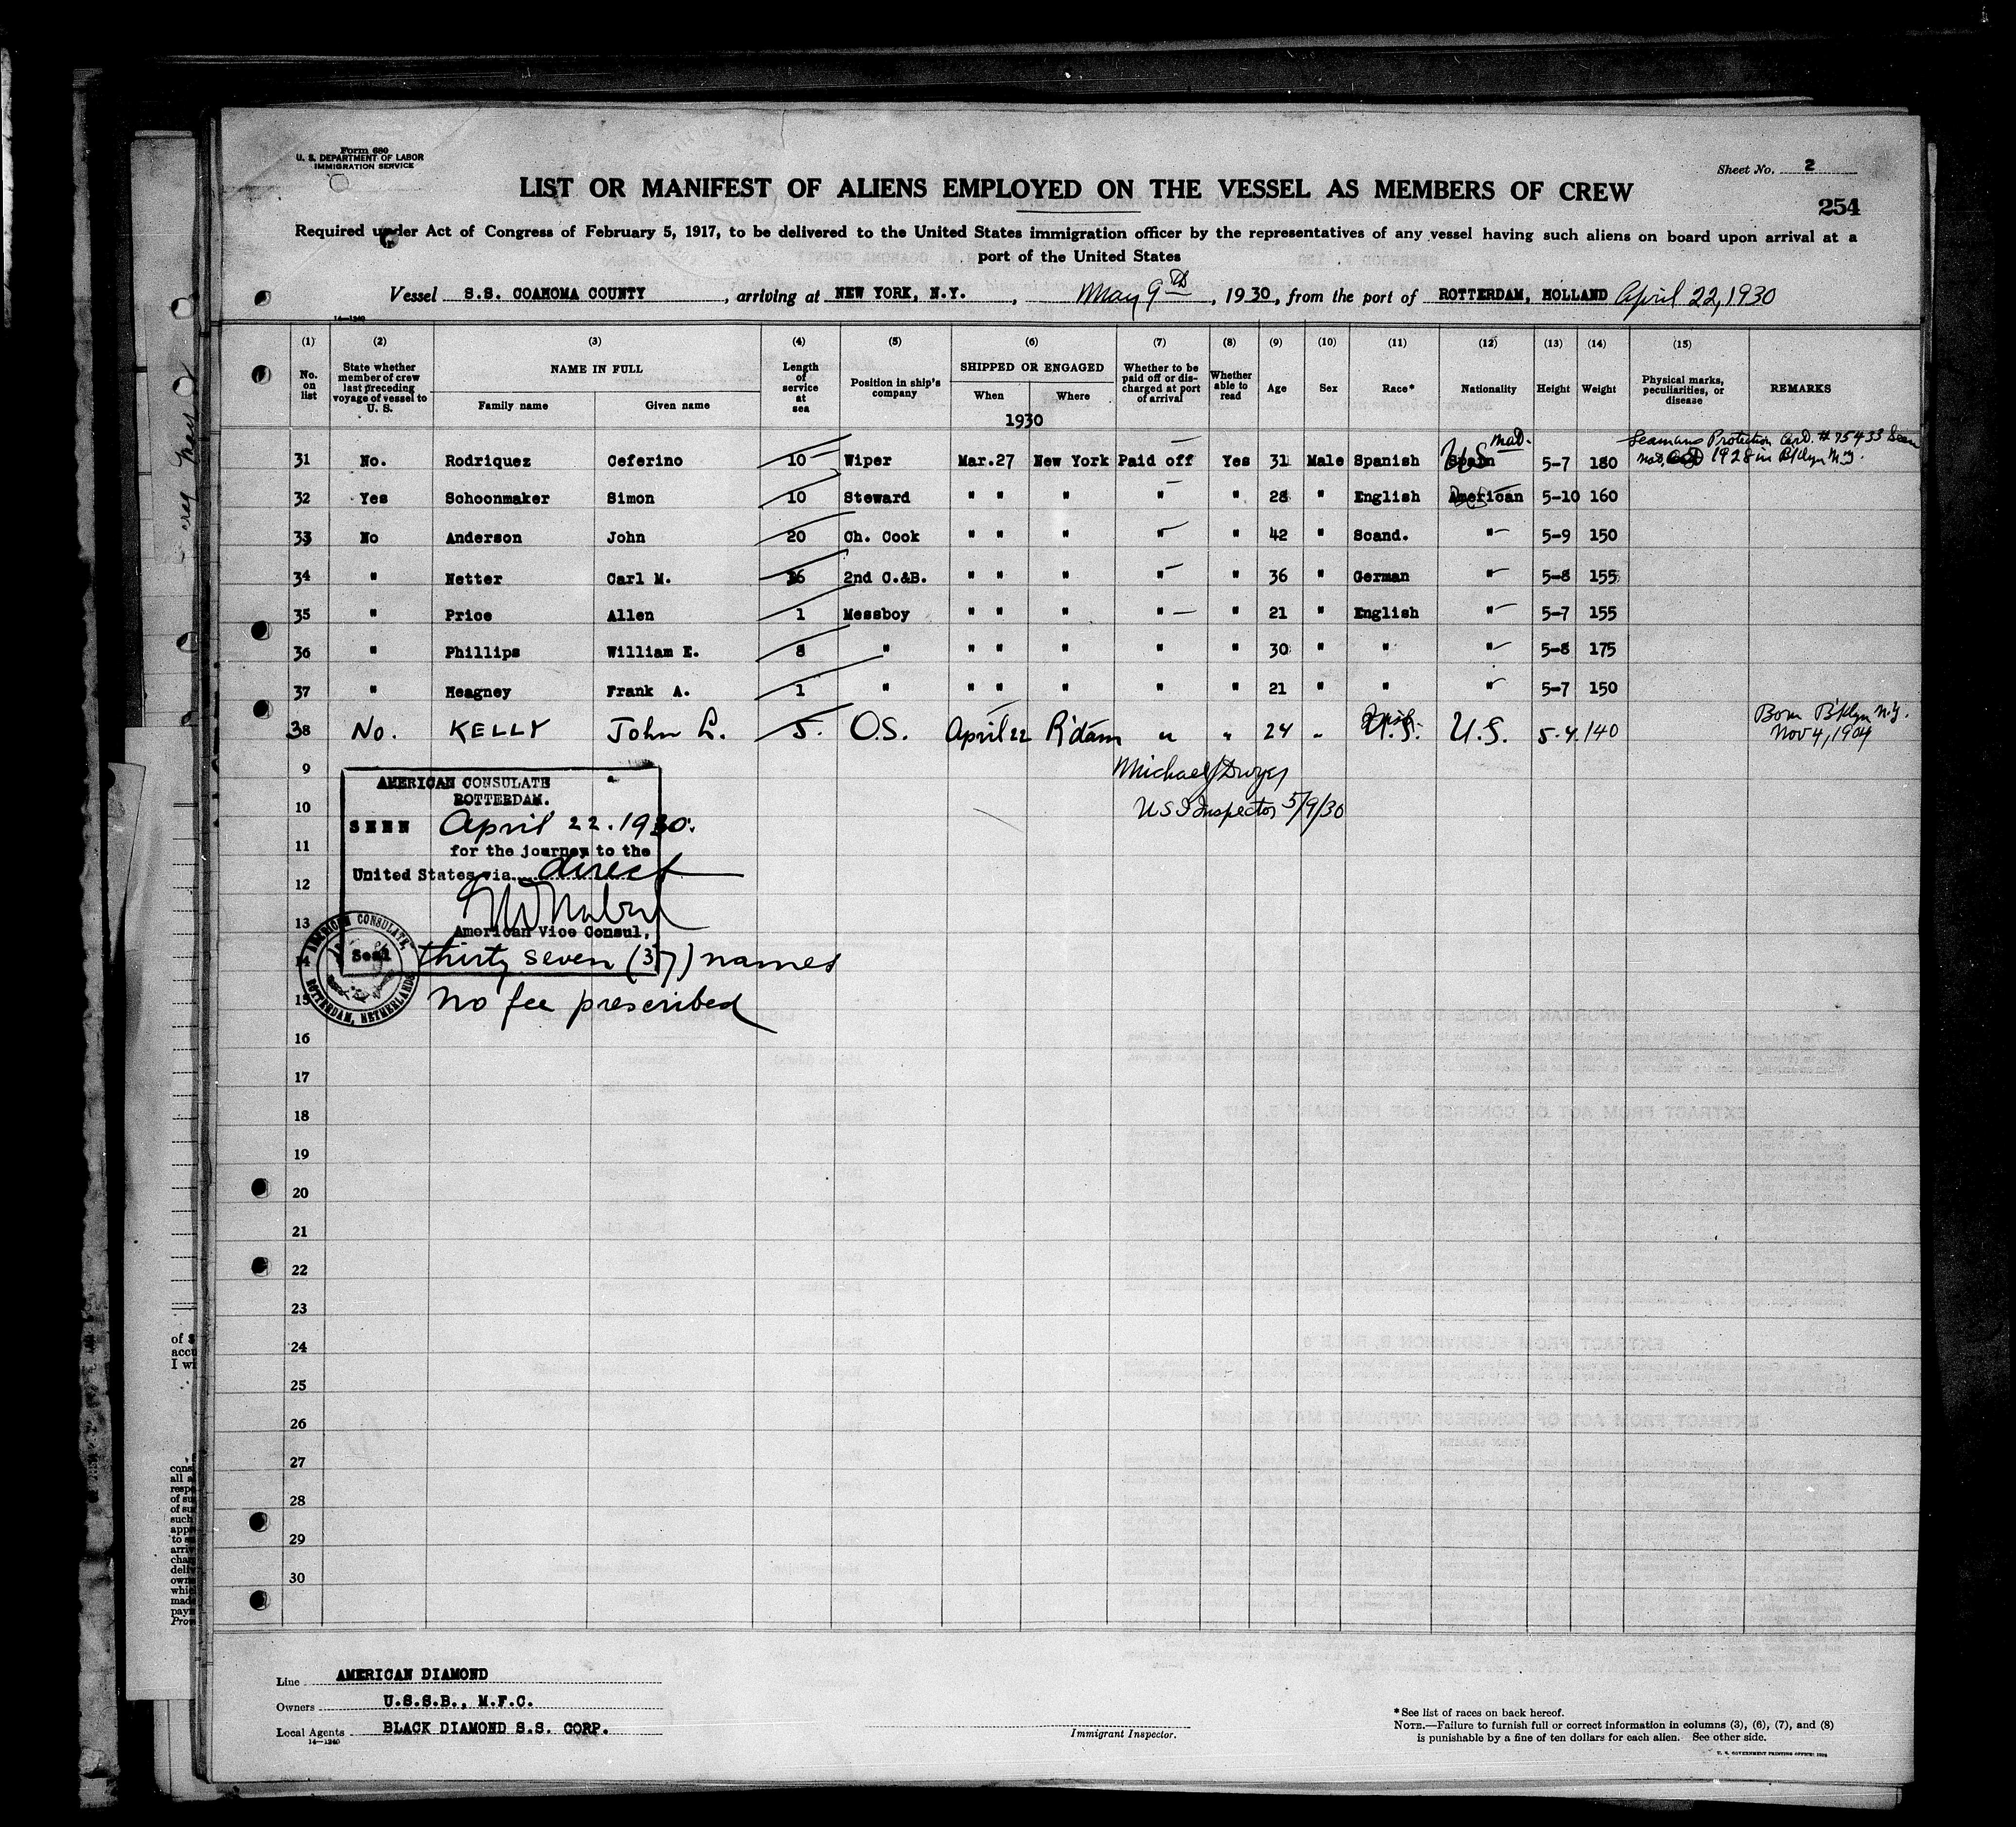 Form 680
U. S. DEPARTMENT OF LABOR
IMMIGRATION SERVICE
Sheet No. 2
LIST OR MANIFEST OF ALIENS EMPLOYED ON THE VESSEL AS MEMBERS OF CREW
254
Required under Act of Congress of February 5, 1917, to be delivered to the United States immigration officer by the representatives of any vessel having such aliens on board upon arrival at a
port of the United States
Vessel S.S. COAHOMA COUNTY, arriving at NEW YORK, N.Y., May 9th, 1930, from the port of ROTTERDAM, HOLLAND April 22, 1930
14—1240
(1) (2) (3) (4) (5) (6) (7) (8) (9) (10) (11) (12) (13) (14) (15)
No. on list
State whether member of crew last preceding voyage of vessel to U. S.
NAME IN FULL
Family name
Given name
Length of service at sea
Position in ship's company
SHIPPED OR ENGAGED
When
Where
1930
Whether to be paid off or discharged at port of arrival
Whether able to read
Age
Sex
Race*
Nationality
Height
Weight
Physical marks, peculiarities, or disease
REMARKS
31 No. Rodriquez Ceferino 10 Wiper Mar.27 New York Paid off Yes 31 Male Spanish Spain US 5-7 180 Seamans Protection Card. # 75433 1928 in Bklyn N.Y.
32 Yes Schoonmaker Simon 10 Steward " " " " " 28 " English American 5-10 160
33 No Anderson John 20 Ch. Cook " " " " " 42 " Scand. " 5-9 150
34 " Netter Carl M. 16 2nd C.&B. " " " " " 36 " German " 5-8 155
35 " Price Allen 1 Messboy " " " " " 21 " English " 5-7 155
36 " Phillips William E. 8 " " " " " " 30 " " " 5-8 175
37 " Heagney Frank A. 1 " " " " " " 21 " " " 5-7 150
38 No. KELLY John L. 5. O.S. April 22 R'dam " " 24 " Irish U.S. U.S. 5-4. 140 Born B'klyn N.Y. Nov 4, 1904
Michael J Dwyer
9
AMERICAN CONSULATE
ROTTERDAM.
10
U S I Inspector 5/9/30
SEEN April 22. 1930.
11
for the journey to the
United States via direct
12
13
American Vice Consul.
AMERICAN CONSULATE, ROTTERDAM, NETHERLANDS
Seal
14
thirty seven (37) names
15
No fee prescribed
16
17
18
19
20
21
22
23
24
25
26
27
28
29
30
Line AMERICAN DIAMOND
Owners U.S.S.B., M.F.C.
Local Agents BLACK DIAMOND S.S. CORP.
14—1240
Immigrant Inspector.
*See list of races on back hereof.
NOTE.—Failure to furnish full or correct information in columns (3), (6), (7), and (8)
is punishable by a fine of ten dollars for each alien. See other side.